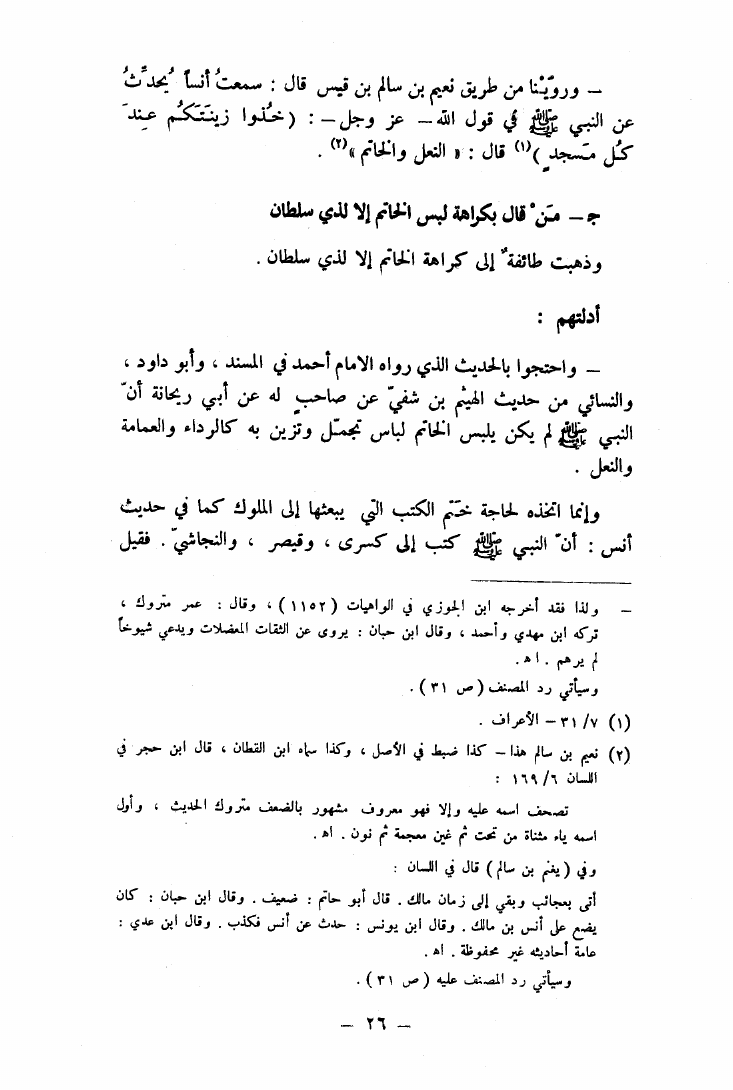 – وروَّيْنا من طريق نعيم بن سالم بن قيس قال : سمعتُ أنساً يُحدِّثُ
عن النبي ﷺ في قول الله – عز وجل – : ( خُذوا زينَتَكُم عِندَ
كُل مَسجدٍ )(١) قال : « النعل والخاتم »(٢) .
جـ – مَنْ قال بكراهة لبس الخاتم إلا لذي سلطان
وذهبت طائفةٌ إلى كراهة الخاتم إلا لذي سلطان .
أدلتهم :
– واحتجوا بالحديث الذي رواه الامام أحمد في المسند ، وأبو داود ،
والنسائي من حديث الهيثم بن شفيّ عن صاحبٍ له عن أبي ريحانة أنّ
النبي ﷺ لم يكن يلبس الخاتم لباس تجمّل وتزين به كالرداء والعمامة
والنعل .
وإنما اتخذه لحاجة خَتْم الكتب التي يبعثها إلى الملوك كما في حديث
أنس : أنّ النبي ﷺ كتب إلى كسرى ، وقيصر ، والنجاشيّ . فقيل
– ولذا فقد أخرجه ابن الجوزي في الواهيات ( ١١٥٢ ) ، وقال : عمر متروك ،
تركه ابن مهدي وأحمد ، وقال ابن حبان : يروى عن الثقات المعضلات ويدعي شيوخاً
لم يرهم . اهـ .
وسيأتي رد المصنف ( ص ٣١ ) .
(١) ٧/ ٣١ – الأعراف .
(٢) نعيم بن سالم هذا – كذا ضبط في الأصل ، وكذا سماه ابن القطان ، قال ابن حجر في
اللسان ٦/ ١٦٩ :
تصحف اسمه عليه وإلا فهو معروف مشهور بالضعف متروك الحديث ، وأول
اسمه ياء مثناة من تحت ثم غين معجمة ثم نون . اهـ .
وفي ( يغنم بن سالم ) قال في اللسان :
أتى بعجائب وبقي إلى زمان مالك . قال أبو حاتم : ضعيف . وقال ابن حبان : كان
يضع على أنس بن مالك . وقال ابن يونس : حدث عن أنس فكذب . وقال ابن عدي :
عامة أحاديثه غير محفوظة . اهـ .
وسيأتي رد المصنف عليه ( ص ٣١ ) .
– ٢٦ –